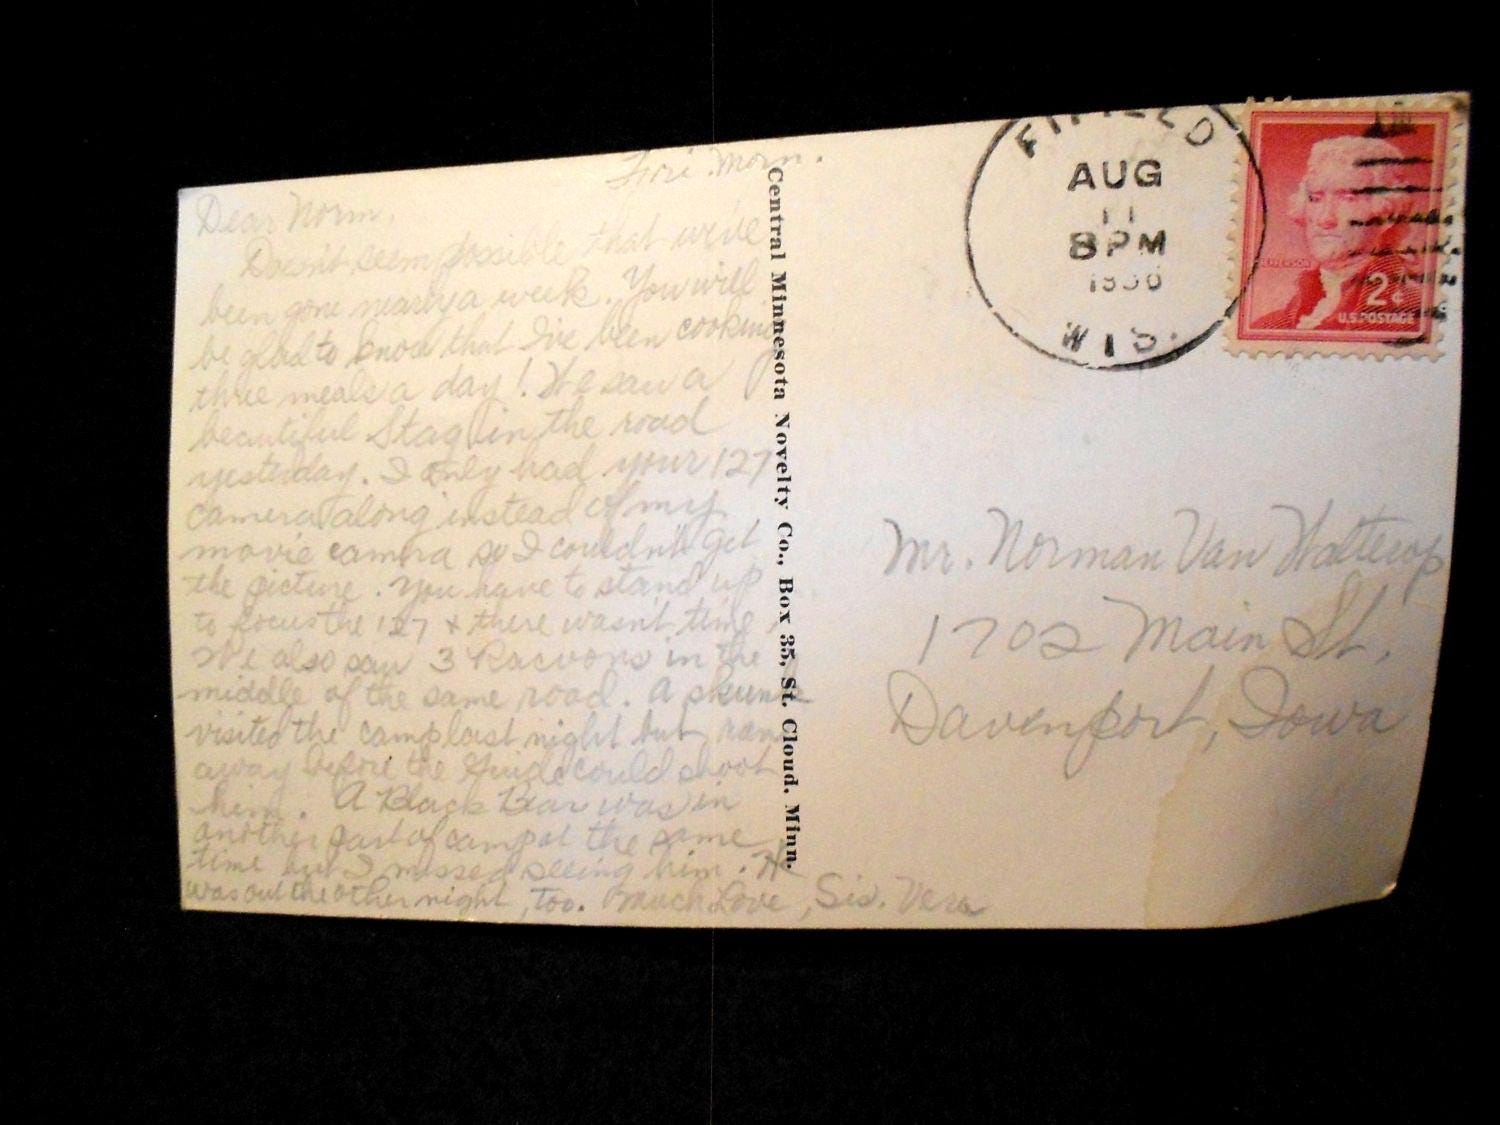 Fri. Morn.
Dear Norm,
Doesn't seem possible that we've
been gone nearly a week. You will
be glad to know that I've been cooking
three meals a day! We saw a
beautiful Stag in the road
yesterday. I only had your 127
camera along instead of my
movie camera so I couldn't get
the picture. You have to stand up
to focus the 127 & there wasn't time.
We also saw 3 Racoons in the
middle of the same road. A skunk
visited the camp last night but ran
away before the Guide could shoot
him. A Black Bear was in
another part of camp at the same
time but I missed seeing him. He
was out the other night, too. Much Love, Sis. Vera
Central Minnesota Novelty Co., Box 35, St. Cloud, Minn.
FIFIELD
AUG
11
8 PM
WIS.
JEFFERSON
2¢
U.S. POSTAGE
Mr. Norman Van Watterop
1702 Main St.
Davenport, Iowa